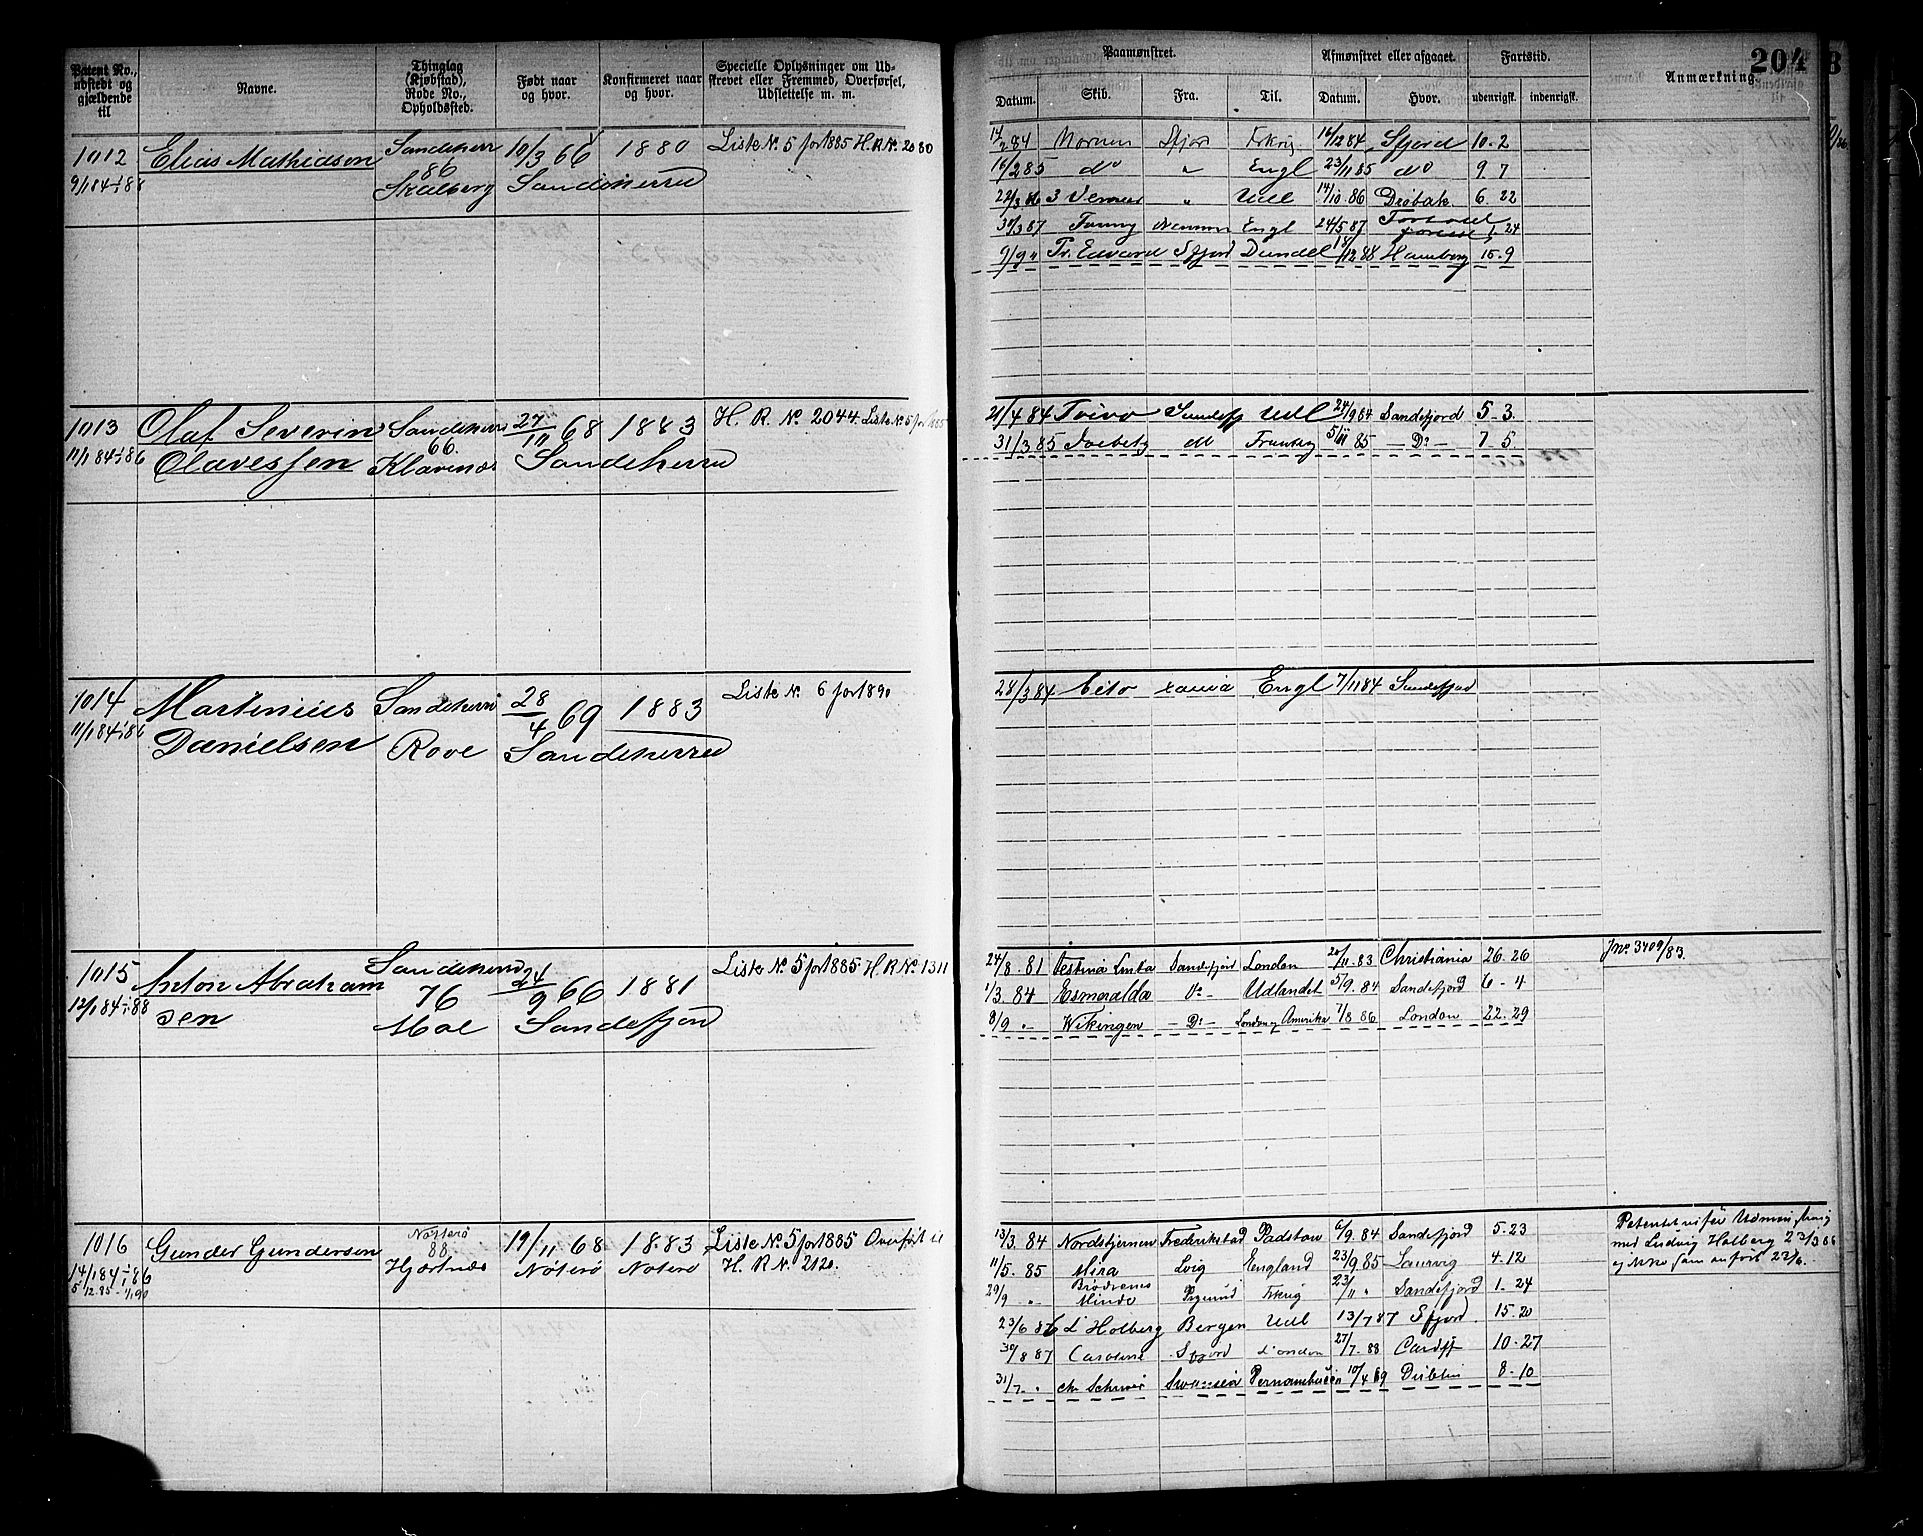 204
Patent No., udstedt og gjældende til
Navne.
Thinglag (Kjøbstad), Rode No., Opholdssted.
Født naar og hvor.
Konfirmeret naar og hvor.
Specielle Oplysninger om Udskrevet eller Fremmed, Overførsel, Udslettelse m. m.
Paamønstret.
Afmønstret eller afgaaet.
Fartstid.
Anmærkning
Datum. Skib. Fra. Til. Datum. Hvor. udenrigsk. indenrigsk.
1012 Elias Mathiasen Sandeherr 10/3 66 1880 Liste No. 5 for 1885 H.R.No. 2080
9/1 84-1/1 88 86
Skalberg Sandeherred
14/2 84 Sfjord 16/12 84 Sfjord 10-2
16/2 85 do " Engl 23/11 85 do 9 7
" Udl 14/10 86 Drøbak 6. 22
Fanny Engl 24/5 87 1-24
9/9 " Fr. Edvard Sfjord 88 Hamborg 15-9
1013 Olaf Severin Sandeherr 27/11 68 1883 H. R. No. 2044. Liste No. 5 for 1885
11/1 84-1/1 86 Olavessen 66.
Klavenæs Sandeherred
21/4 84 Udl 24/9 84 Sandefjord 5 3.
31/3 85 do 85 — Do — 7-5
1014 Martinius Sandeherr 28/4 69 1883 Liste No. 6 for 1890
11/1 84-1/1 86 Danielsen Rove Sandeherred
28/3 84 Engl 7/11 84 Sandefjord
1015 Anton Abraham Sandeherred 24/9 66 1881 Liste No. 5 for 1885 H.R.No. 1311
12/1 84-1/1 88 sen 76
Moe Sandefjord
24/8. 81 Sandefjord London 20/11. 83 Christiania 26. 26 Jno. 3409/83.
1/3. 84 Esmeralda Do - Udlandet 5/9. 84 Sandefjord 6-4
8/9 " Wikingen — Do — London og Amerika 1/8 86 London 22. 29
1016 Gunder Gundersen Nøtterø 19/11 68 1883 Liste No. 5 for 1885 Overført til
14/1 84-1/1 86 88 H. R. No. 2120.
5/12.85-1/1 90 Hjertnæs Nøterø Nøterø
13/3. 84 Nordstjernen Frederikstad Padstow 6/9. 84 Sandefjord 5-23
11/5. 85 Mira Lvig England 23/9 85 Laurvig 4. 12
29/9 " Brødrenes Minde 23/11 " Sandefjord 1. 24
23/6 86 L Holberg Bergen Udl 13/7 87 Sfjord. 15. 20
30/8 87 Caroline Sfjord London 27/7. 88 Cardiff 10-27
31/7. " Swansea Pernambuco 10/4 89 Dublin 8-10
med Ludvig Holberg 23/3 86